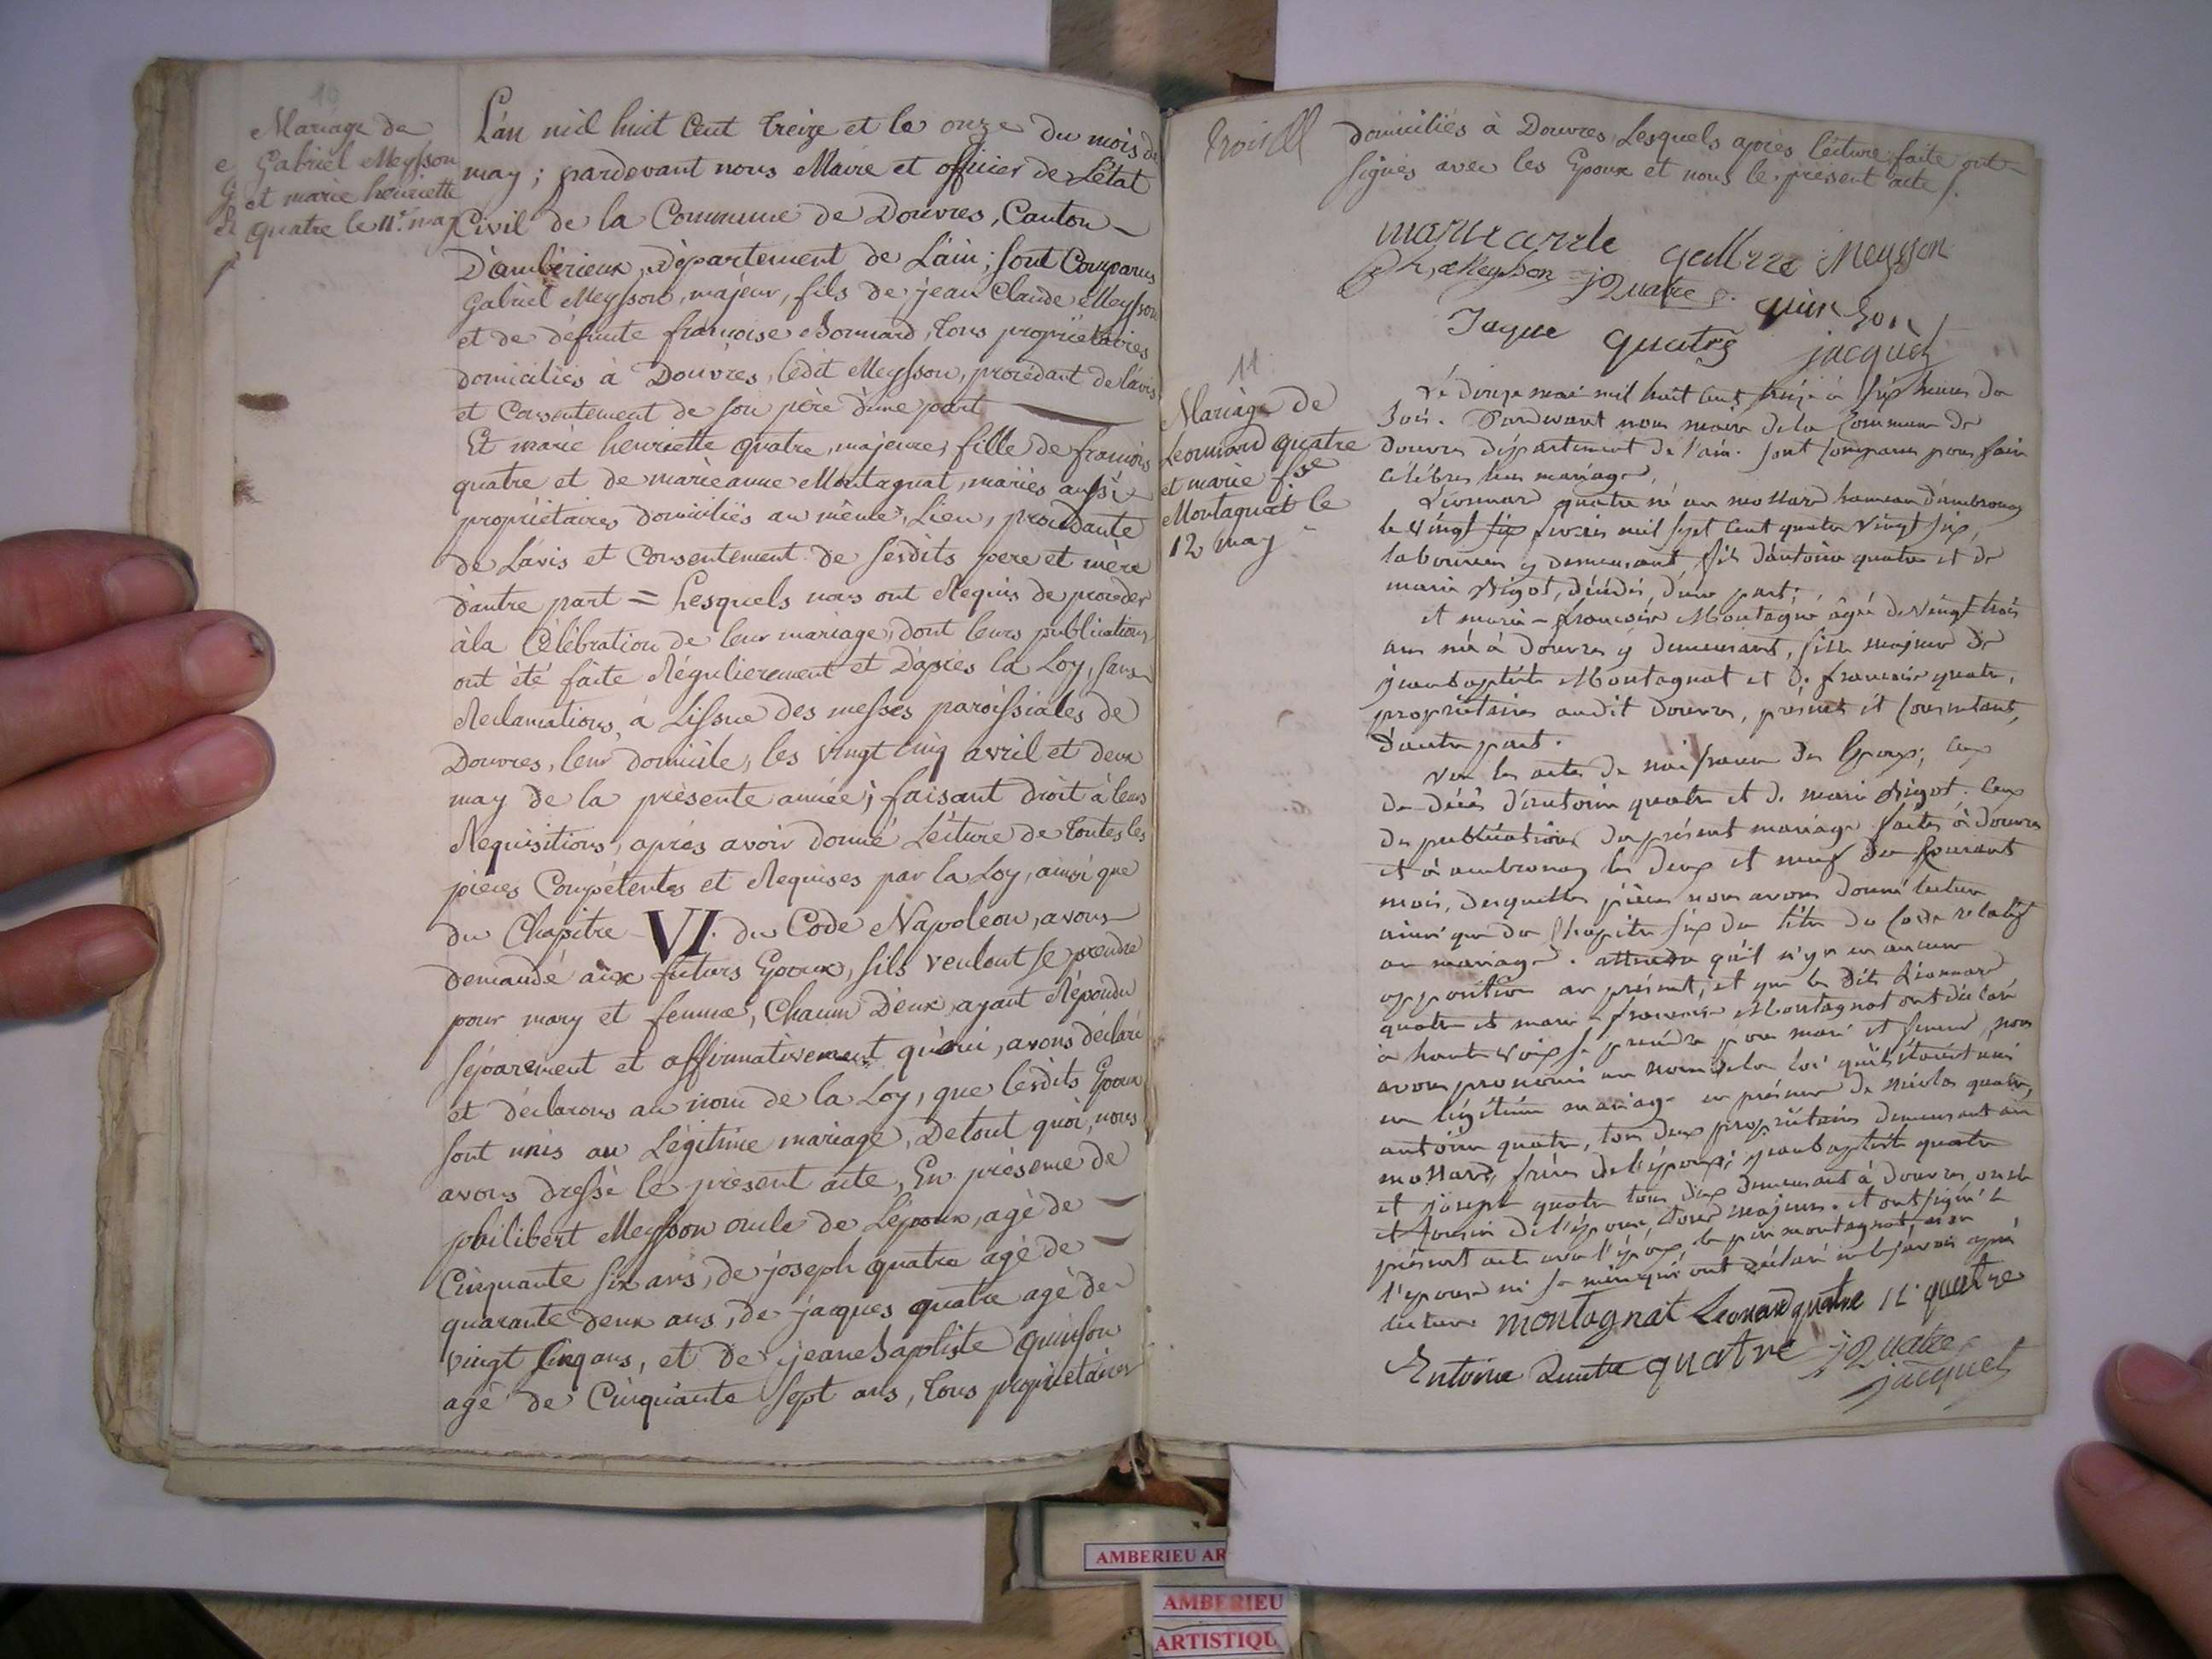 10
Mariage de
Gabriel Meysson
et marie henriette
quatre le 11e. may
L'an mil huit Cent treize et le onze du mois de
may ; pardevant nous Maire et officier de L'état
Civil de la Commune de Douvres, Canton
D'ambérieux, Département de L'ain ; sont Comparus
Gabriel Meysson, majeur, fils de jean Claude Meysson
et de défunte françoise Bonnard, tous propriétaires
domiciliés à Douvres, ledit Meysson, procédant de l'avis
et Consentement de son père d'une part
Et marie henriette quatre, majeure, fille de françois
quatre et de marieanne Montagnat, mariés aussi
propriétaires domiciliés au même Lieu, procédante
de L'avis et Consentement de sesdits pere et mère
d'autre part = Lesquels nous ont Requis de procéder
à la Célébration de leur mariage, dont leurs publications
ont été faite Régulierement et D'après la Loy, sans
Reclamations, à L'issue des messes paroissiales de
Douvres, leur domicile, les vingt cinq avril et deux
may de la présente année ; faisant droit à leurs
Requisitions, après avoir donné Lécture de toutes les
pieces Compétentes et Requises par la Loy, ainsi que
du Chapitre VI. du Code Napoleon, avons
demandé aux futurs Epoux, s'ils veulent se prendre
pour mary et femme, Chacun D'eux, ayant Répondu
séparement et affirmativement qu'oui, avons déclaré
et déclarons au nom de la Loy, que lesdits Epoux
sont unis au Légitime mariage, De tout quoi, nous
avons dressé le présent acte, En présence de
philibert Meysson oncle de L'époux, agé de
Cinquante six ans, de joseph quatre agé de
quarante deux ans, de jacques quatre agé de
vingt Cinq ans, et de jean Baptiste quinson
agé de Cinquante sept ans, tous propriétaires
trois
domiciliés à Douvres, Lesquels après lécture faite ont
signés avec les Epoux et nous le présent acte /.
quattre Meysson
Ph, Meysson jQuatre quinson
Jaque quatre jacquet
11
Mariage de
Leonard quatre
et marie fse
Montagnat le
12 may
Le douze mai mil huit cent treize à six heures du
soir. Pardevant nous maire de la Commune de
douvres département de l'ain. sont comparus pour faire
célébrer leur mariage,
Léonnard quatre né au mollard hameau d'ambronay
le vingt six fevrier mil sept cent quatre vingt six,
laboureur y demeurant, fils d'antoine quatre et de
marie Bigot, décédés, d'une part ;
et marie-françoise Montagna âgée de vingt trois
ans née à douvres y demeurant, fille majeure de
jeanbaptiste Montagnat et de françoise quatre,
propriétaires audit douvres, présents et consentants,
d'autre part.
Vu les actes de naissance des Epoux ; ceux
de décès d'antoine quatre et de marie Bigot. ceux
des publications du présent mariage faites à douvres
et à ambronay les deux et neuf du courant
mois, desquelles pièces nous avons donné lecture
ainsi que du chapitre six du titre du Code relatif
au mariage. attendu qu'il n'y a eu aucune
opposition au présent, et que les dits Léonnard
quatre et marie-françoise Montagnat ont déclaré
à haute voix se prendre pour mari et femme, nous
avons prononcé au nom de la loi qu'ils étaient unis
en légitime mariage en présence de nicolas quatre,
antoine quatre, tous deux propriétaires demeurant au
mollard, frères de l'époux ; jeanbaptiste quatre
et joseph quatre tous deux demeurant à douvres, oncle
et cousin de l'épouse, tous majeurs. et ont signé le
présent acte avec l'époux, le père montagnat, non
l'épouse ni sa mère qui ont déclaré ne le savoir après
lecture montagnat Leonard quatre N quatre
Antoine Quatre quatre jQuatre
jacquet
AMBERIEU AR
AMBERIEU
ARTISTIQU